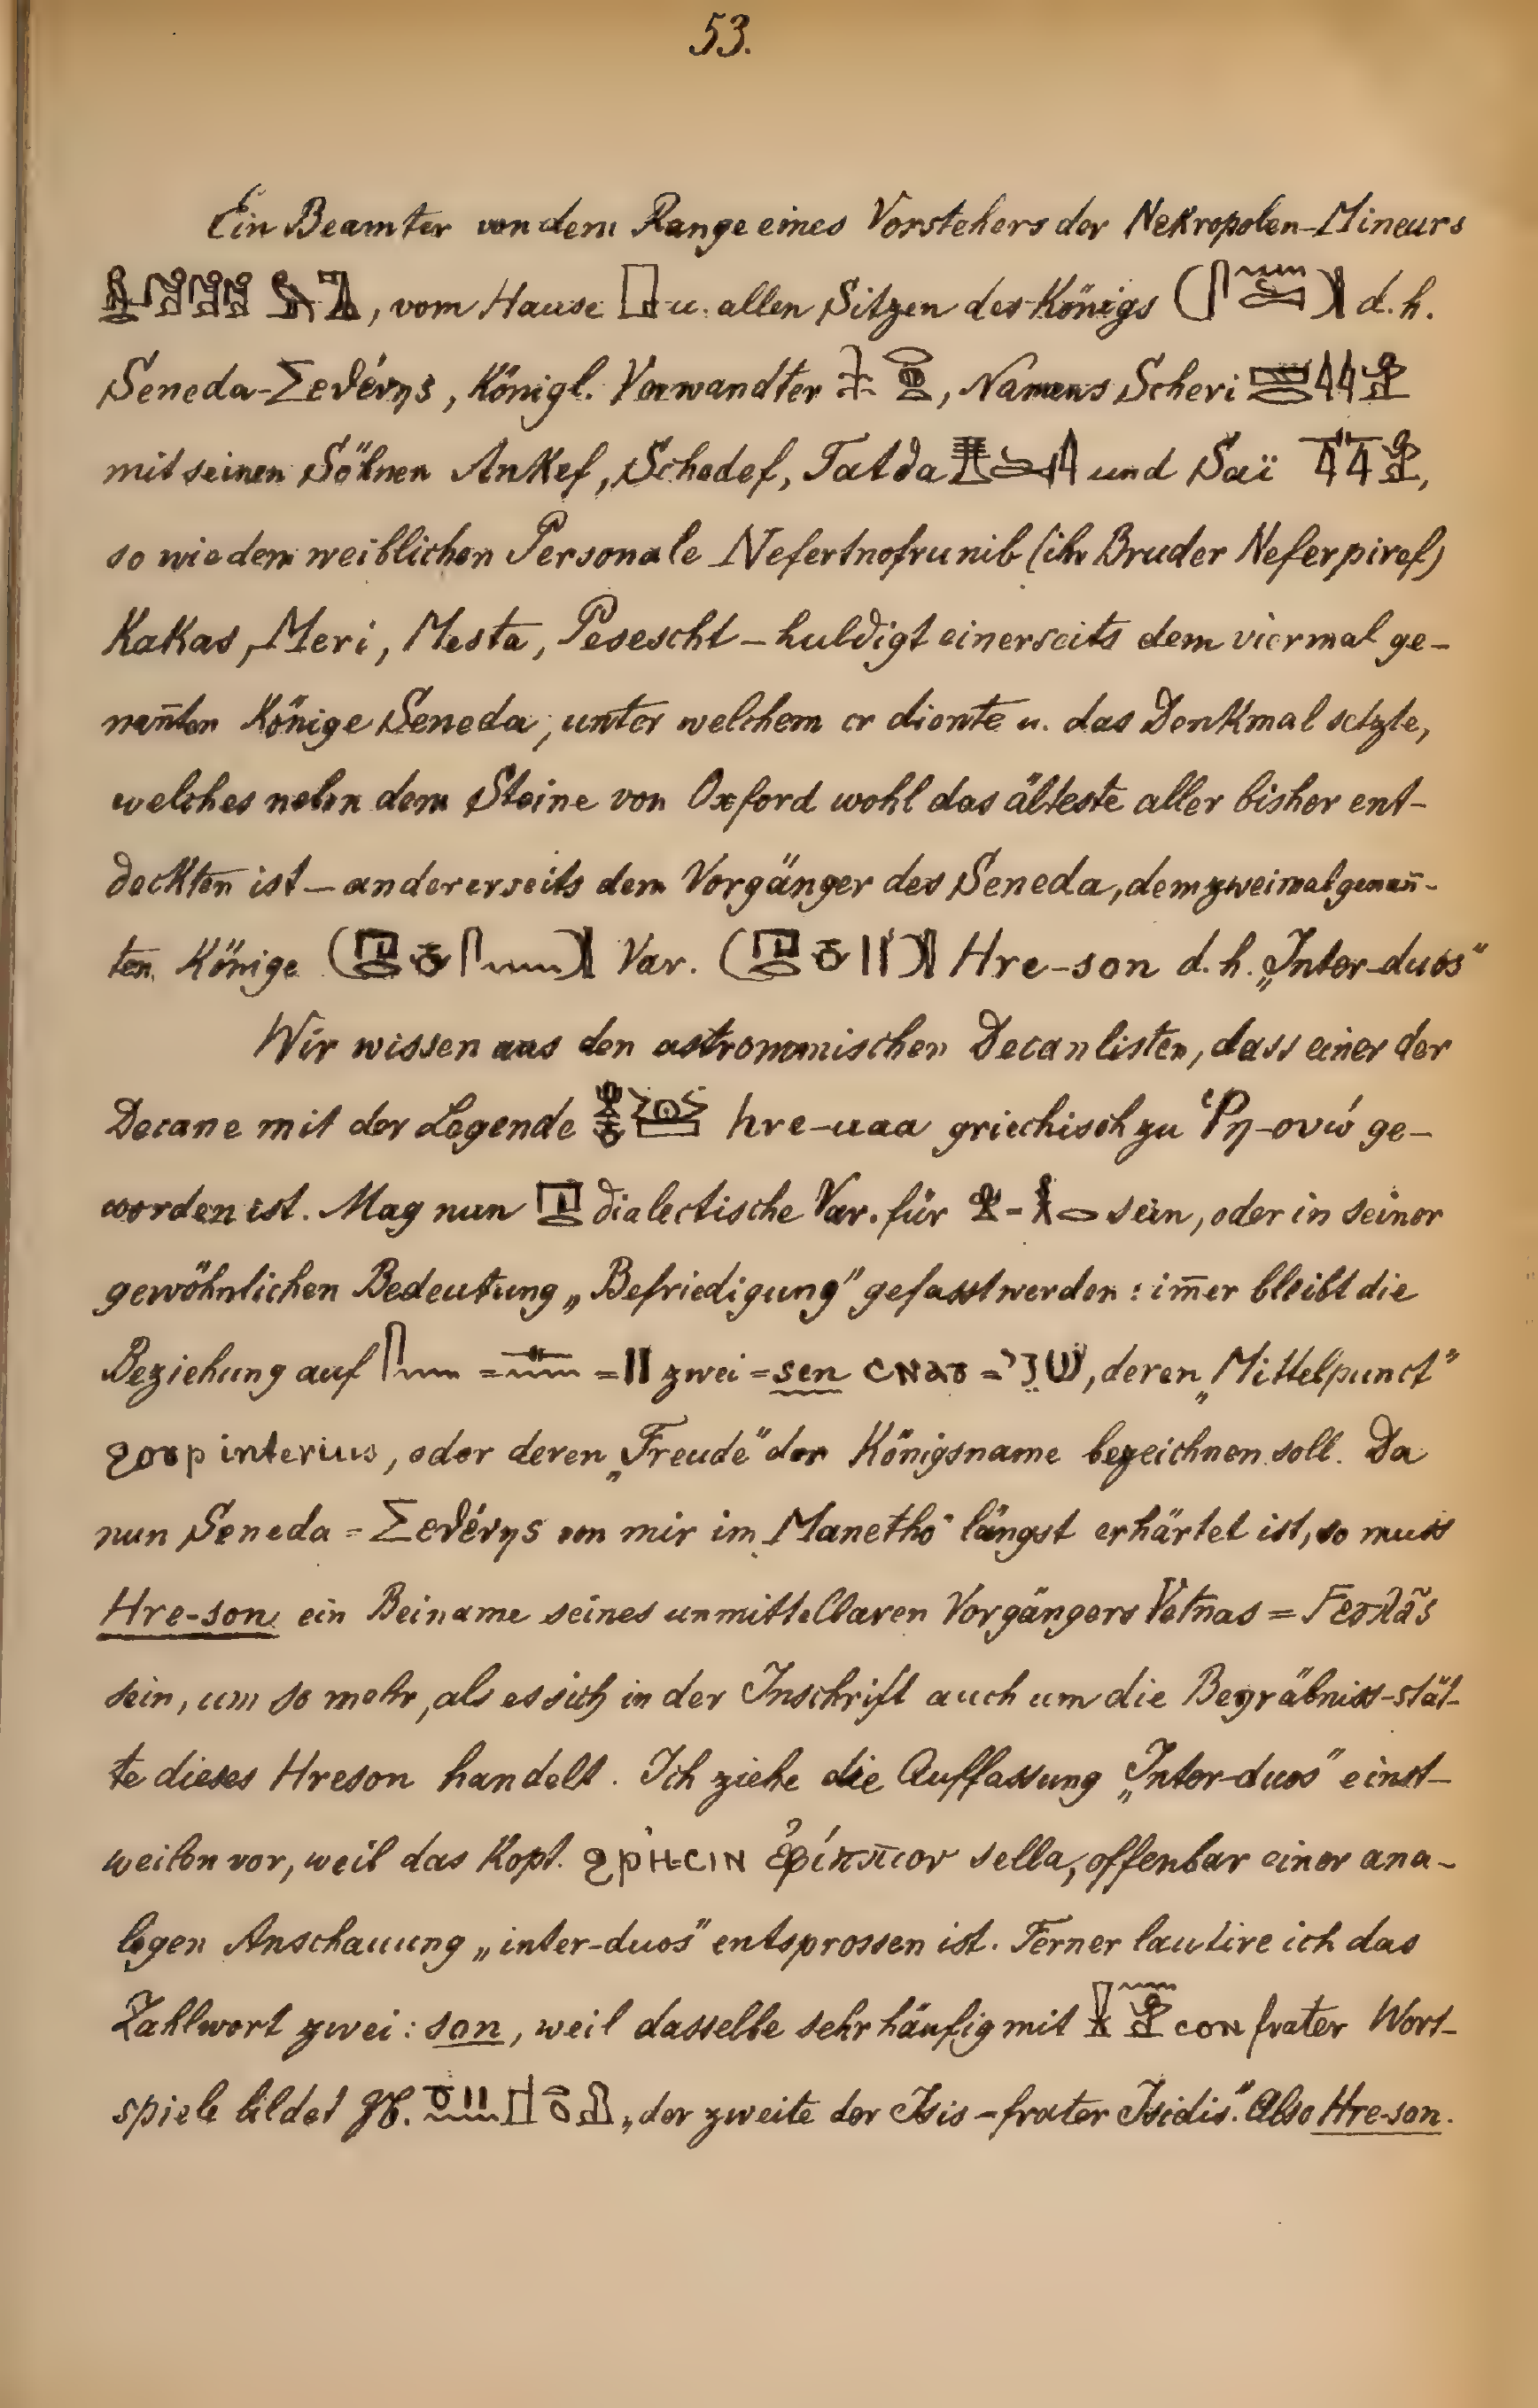 53.
Ein Beamter von dem Range eines Vorstehers der Nekropolen-Mineurs
, vom Hause u. allen Sitzen des Königs d. h.
Seneda-Σεθένης, Königl. Verwandter , Namens Scheri
mit seinen Söhnen Ankef, Schedef, Tatda und Saï ,
so wie dem weiblichen Personale Nefertnofrunib (ihr Bruder Neferpiref)
Kakas, Meri, Mesta, Pesescht – huldigt einerseits dem viermal ge-
nan̄ten Könige Seneda, unter welchem er diente u. das Denkmal setzte,
welches neben dem Steine von Oxford wohl das älteste aller bisher ent-
deckten ist – andererseits dem Vorgänger des Seneda, dem zweimal genan̄-
ten Könige Var. Hre-son d. h. „Inter-duos"
Wir wissen aus den astronomischen Decanlisten, dass einer der
Decane mit der Legende hre-uaa griechisch zu Ῥη-ουώ ge-
worden ist. Mag nun dialectische Var. für sein, oder in seiner
gewöhnlichen Bedeutung „Befriedigung" gefasst werden: im̄er bleibt die
Beziehung auf = = || zwei = sen ⲥⲛⲁⲩ = שני, deren „Mittelpunct"
ϩⲟⲩⲣ interius, oder deren „Freude" der Königsname bezeichnen soll. Da
nun Seneda = Σεθένης von mir im „Manetho" längst erhärtet ist, so muss
Hre-son ein Beiname seines unmittelbaren Vorgängers Vetnas =
sein, um so mehr, als es sich in der Inschrift auch um die Begräbniss-stät-
te dieses Hreson handelt. Ich ziehe die Auffassung „Inter-duos" einst-
weilen vor, weil das Kopt. ϩⲣⲏⲥⲓⲛ ἐφίππιον sella, offenbar einer ana-
logen Anschauung „inter-duos" entsprossen ist. Ferner lautire ich das
Zahlwort zwei: son, weil dasselbe sehr häufig mit ⲥⲟⲛ frater Wort-
spiele bildet zB. „der zweite der Isis – frater Isidis". Also Hre-son.